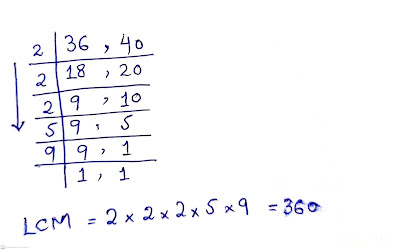 2 | 36 , 40
2 | 18 , 20
2 | 9 , 10
5 | 9 , 5
9 | 9 , 1
| 1 , 1
LCM = 2 × 2 × 2 × 5 × 9 = 360